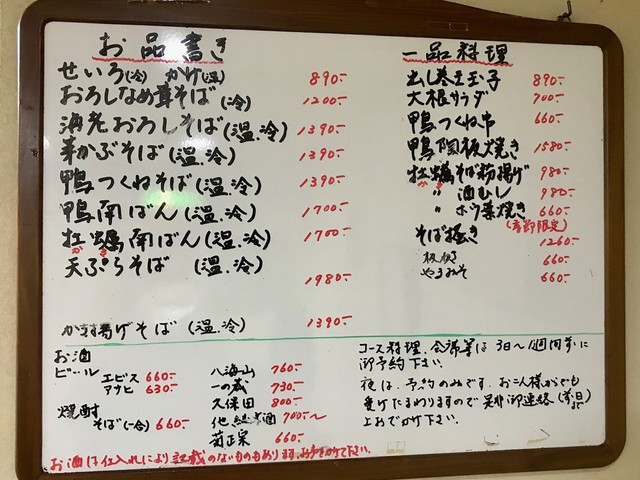 お品書き
せいろ(冷) かけ(温) 890.-
おろしなめ茸そば(冷) 1200.-
海老おろしそば(温.冷) 1390.-
芋かぶそば(温.冷) 1390.-
鴨つくねそば(温.冷) 1390.-
鴨南ばん(温.冷) 1700.-
牡蠣南ばん(温.冷) 1700.-
かき
天ぷらそば (温.冷) 1980.-
かき揚げそば(温.冷) 1390.-
一品料理
出し巻玉子 890.-
大根サラダ 700.-
鴨つくね串 660.-
鴨陶板焼き 1580.-
牡蠣そば粉揚げ 980.-
かき
〃 酒むし 980.-
〃 ホウ葉焼き 660.-
(季節限定)
そば掻き 1260.-
板わさ 660.-
やきみそ 660.-
お酒
ビール
エビス 660.-
アサヒ 630.-
焼酎
そば(一合) 660.-
八海山 760.-
一の蔵 730.-
久保田 800.-
他 純米酒 700.-〜
菊正宗 660.-
お酒は仕入れにより記載のないものもあります。お尋ね下さい.
コース料理、会席等は3日〜1週間前に
御予約下さい。
夜は、予約のみです。お二人様からでも
受けたまわりますので是非御連絡(前日まで)
上おでかけ下さい。